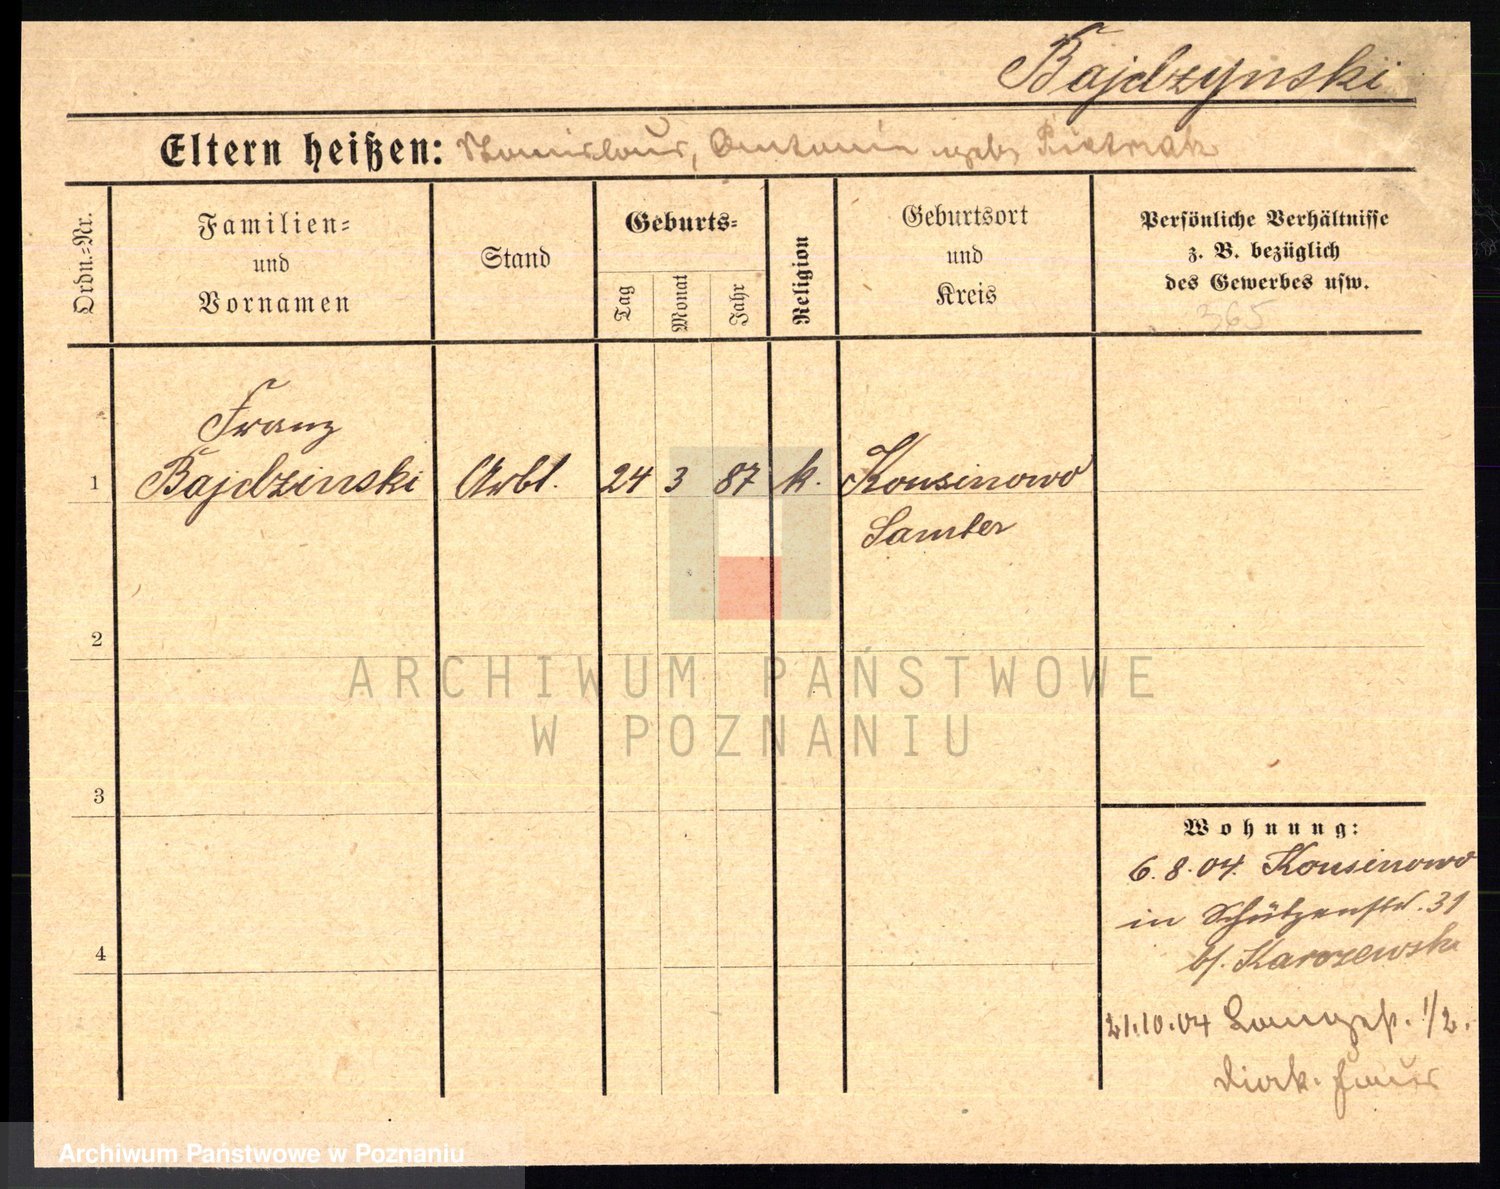 Bajdzynski
Eltern heißen: Stanislaus, Antonie geb. Pietrzak
Ordn.=Nr.
Familien=
und
Vornamen
Stand
Geburts=
Tag
Monat
Jahr
Religion
Geburtsort
und
Kreis
Persönliche Verhältnisse
z. B. bezüglich
des Gewerbes usw.
365
Franz
1 Bajdzinski Arbt. 24 3 87 k. Kousinowo
Samter
2
ARCHIWUM PAŃSTWOWE
W POZNANIU
3
Wohnung:
6.8.04. Kousinowo
in Schützenstr. 31
b/. Karczewski
4
21.10.04 Langest. 1/2.
Archiwum Państwowe w Poznaniu